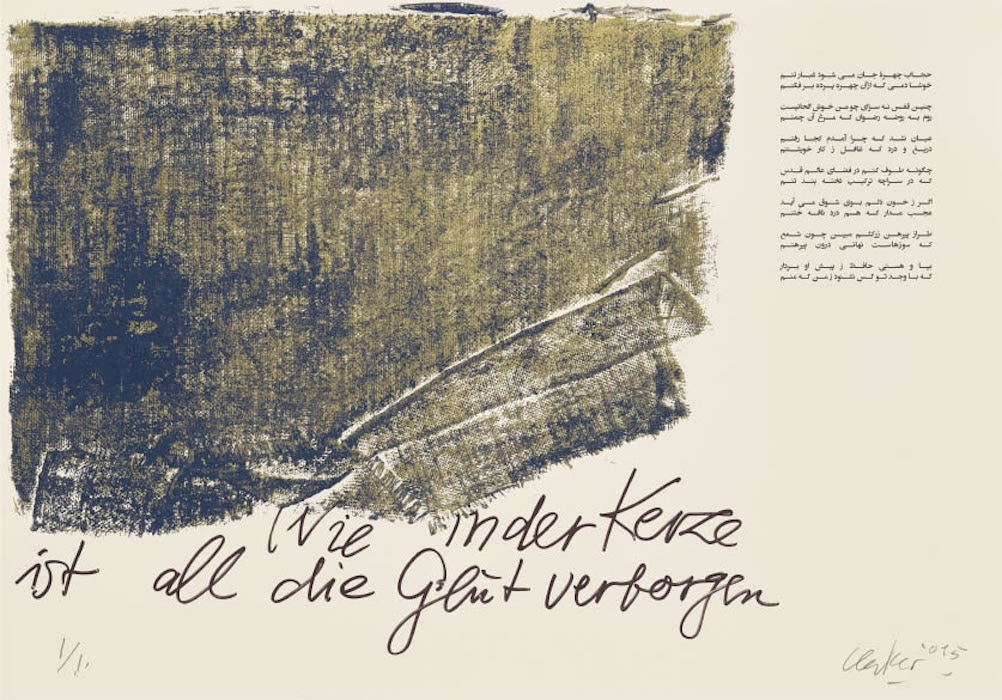 حجاب چهرهٔ جان می شود غبار تنم
خوشا دمی که ازآن چهره پرده برفکنم
چنین قفس نه سزای چومن خوش الحانیست
روم به روضه رضوان که مرغ آن چمنم
عیان نشد که چرا آمدم کجا رفتم
دریغ و درد که غافل ز کار خویشتنم
چگونه طوف کنم در فضای عالم قدس
که در سراچه ترکیب تخته بند تنم
اگر ز خون دلم بوی شوق می آید
عجب مدار که هم درد نافه ختنم
طراز پیرهن زرکشم مبین چون شمع
که سوزهاست نهانی درون پیرهنم
بیا و هستی حافظ ز پیش او بردار
که با وجود تو کس نشنود ز من که منم
Wie in der Kerze
ist all die Glut verborgen
Uecker '015